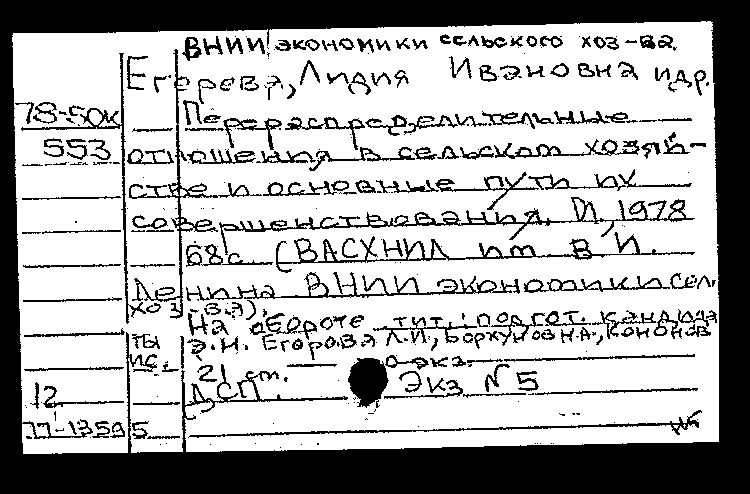 ВНИИ экономики сельского хоз-ва
Егорева, Лидия Ивановна и др.
78-50к Перераспределительные
553 отношения в сельском хозяй-
стве и основные пути их
совершенствования. М, 1978
68с (ВАСХНИЛ им В И.
Ленина ВНИИ экономики сел.
хоз-ва).
На обороте тит.: подгот. кандида
ты э.н. Егорова Л.И., Борхунов Н.А., Кононов
ис. 21 ст. 0 экз.
12 ДСП. Экз N 5
77-13595